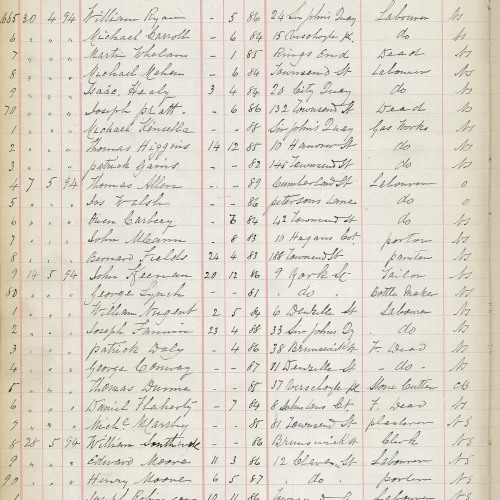 865 30 4 94 William Ryan - 5 86 24 Sir John's Quay Labourer NS
6 " " " Michael Carroll - 6 84 15 Verschoyle Pl. do NS
7 " " " Martin Whelan - 1 85 Rings End Dead NS
8 " " " Michael Mahon - 6 84 Townsend St Labourer NS
9 " " " Isaac Healy 3 4 84 20 City Quay do NS
70 " " " Joseph Pratt - 6 86 132 Townsend St Dead NS
1 " " " Michael Kinsella - - 88 Sir John's Quay Gas Works NS
2 " " " Thomas Higgins 14 12 85 10 Hanover St do NS
3 " " " Patrick - - 82 145 Townsend St do NS
4 7 5 94 Thomas Allen - - 89 Cumberland St Labourer O
5 " " " Jas Walsh - - 86 Petersons Lane do O
6 " " " Owen Carbery - 6 84 42 Townsend St do NS
7 " " " John McCann - 8 83 10 Hagans Cot. porter NS
8 " " " Bernard Fields 24 4 83 188 Townsend St painter NS
9 14 5 94 John Freeman 20 12 86 9 York St Tailor NS
80 " " " George Lynch - - 81 do Bottle Maker NS
1 " " " William Nugent 2 5 84 6 Denzille St Labourer NS
2 " " " Joseph Fannin 23 4 88 33 Sir John's Qy do NS
3 " " " Patrick Daly - 4 86 38 Brunswick St F. Dead NS
4 " " " George Conway - - 87 31 Denzille St - do - NS
5 " " " Thomas Dunne - - 85 37 Verschoyle Pl Stone Cutter CB
6 " " " Daniel Flaherty - 7 84 8 Ct. F. Dead NS
7 " " " Michl - - 85 81 Townsend St plasterer NS
8 28 5 94 William - - 86 Brunswick St Clerk NS
9 " " " Edward Moore 11 3 86 12 Clarence St Labourer NS
90 " " " Henry Moore 6 5 87 do. porter NS
1 " " " Joseph 10 11 86 Labourer